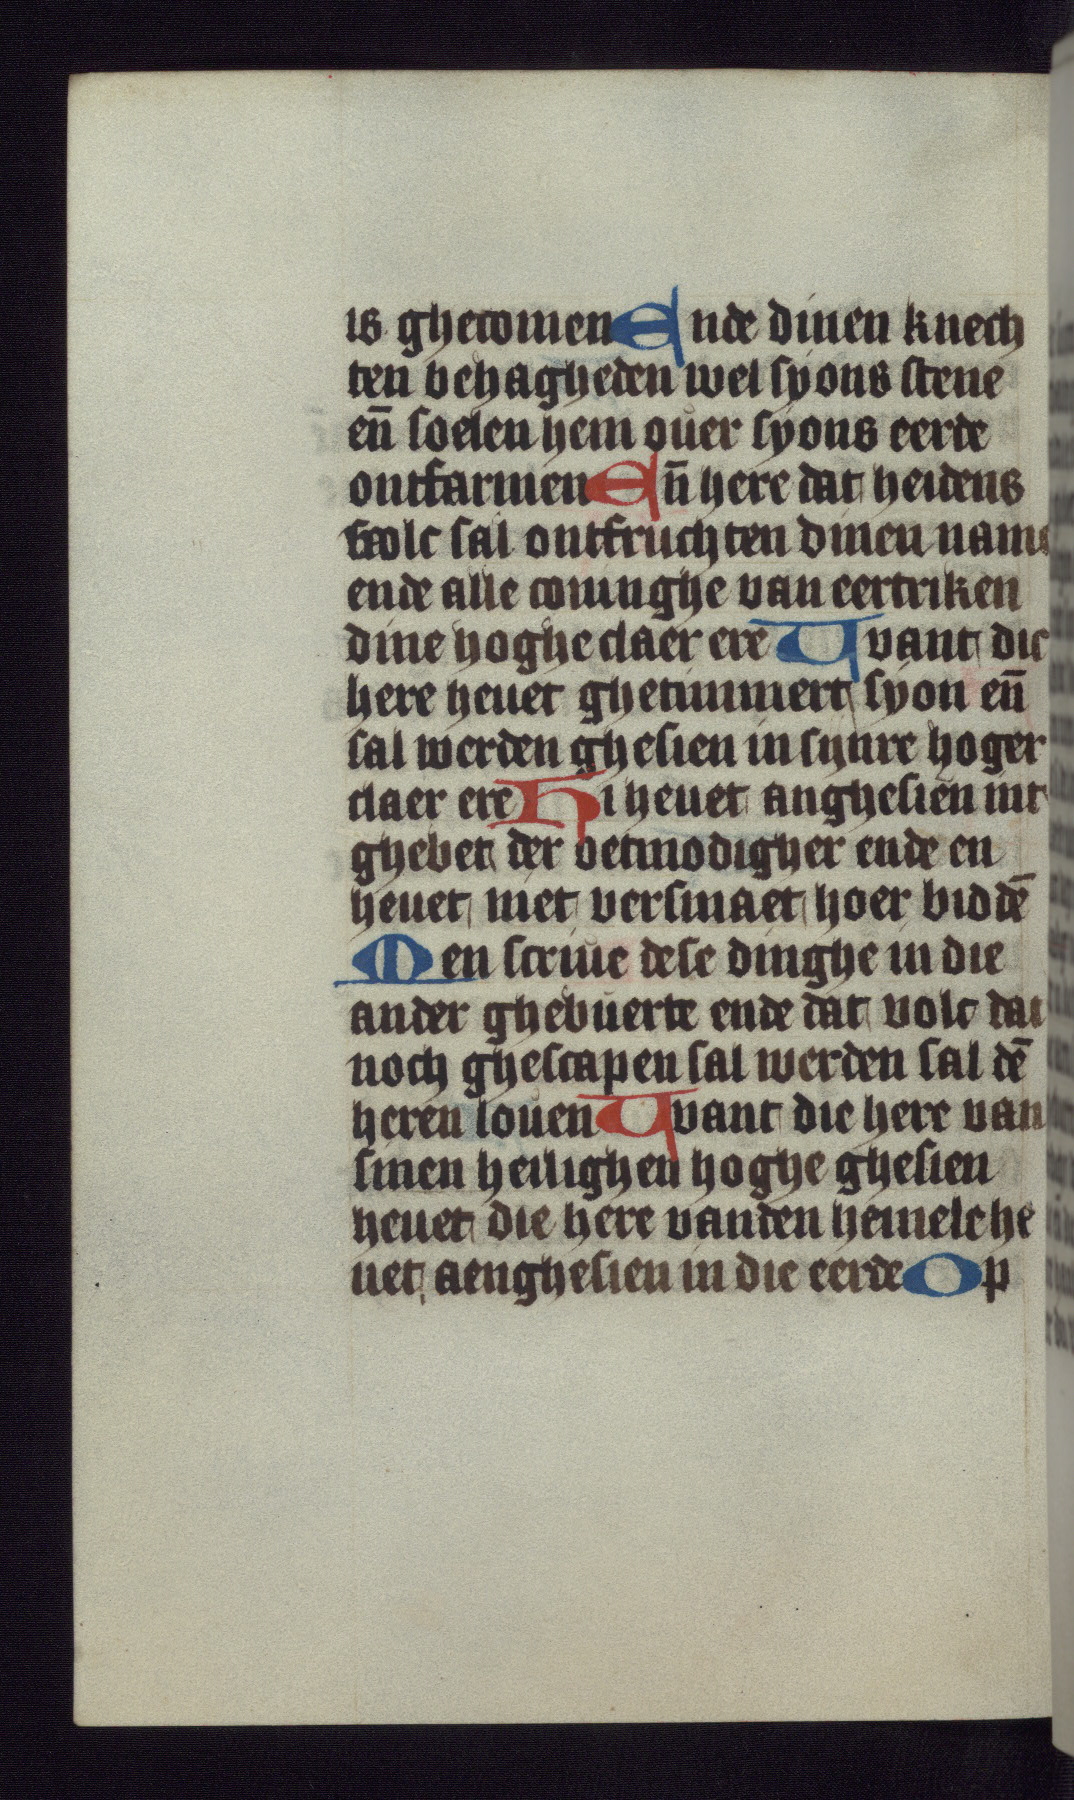 is ghecomen Ende dinen knech
ten behagheden wel syons stene
en̄ soelen hem ouer syons eerde
ontfarmen En̄ here dat heidens
volc sal ontfruchten dinen name
ende alle coninghe van eertriken
dine hoghe claer ere Want die
here heuet ghetimmert syon en̄
sal werden ghesien in synre hoger
claer ere Hi heuet anghesien int
ghebet der oetmodigher ende en
heuet niet versmaet hoer biddē
Men scriue dese dinghe in die
ander ghebuerte ende dat volc dat
noch ghescapen sal werden sal dē
heren louen Want die here van
sinen heilighen hoghe ghesien
heuet die here vanden hemel he
uet aenghesien in die eerde Op